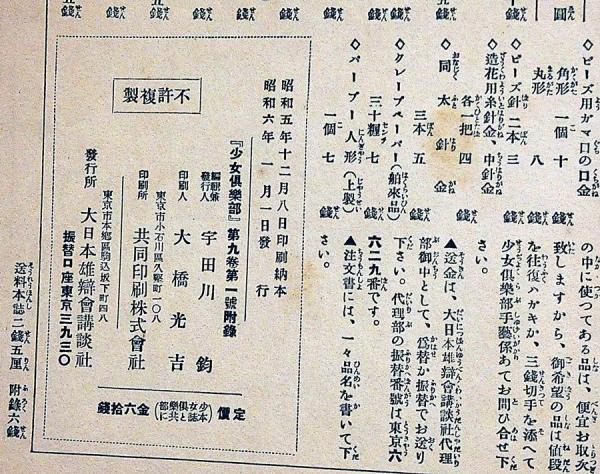 ◇ビーズ用ガマ口の口金
角形 一個 十 錢
丸形 八 錢
◇ビーズ針二本 三 錢
◇造花用糸針金、中針金
各一把 四 錢
◇同 太針金
三本 五 錢
◇クレープペーパー（舶來品）
三十糎 七 錢
◇パープー人形（上製）
一個 七 錢
の中に使つてある品は、便宜お取次
致しますから、御希望の品は値段
を往復ハガキか、三錢切手を添へて
少女俱樂部手藝係あてお問ひ合せ下
さい。
▲送金は、大日本雄辯會講談社代理
部御中として、爲替か振替でお送り
下さい。代理部の振替番號は東京六
六二九番です。
▲注文書には、一々品名を書いて下
さい。
不許複製
昭和五年十二月八日印刷納本
昭和六年 一月一日發 行
『少女俱樂部』第九卷第一號附錄
編輯兼發行人 宇田川 鈞
印刷人 大橋光吉
東京市小石川區久堅町一〇八
印刷所 共同印刷株式會社
東京市本鄉區駒込坂下町四八
發行所 大日本雄辯會講談社
振替口座東京三九三〇
定價（少女俱樂部本誌と共に）金六拾錢
送料本誌二錢五厘 附錄六錢